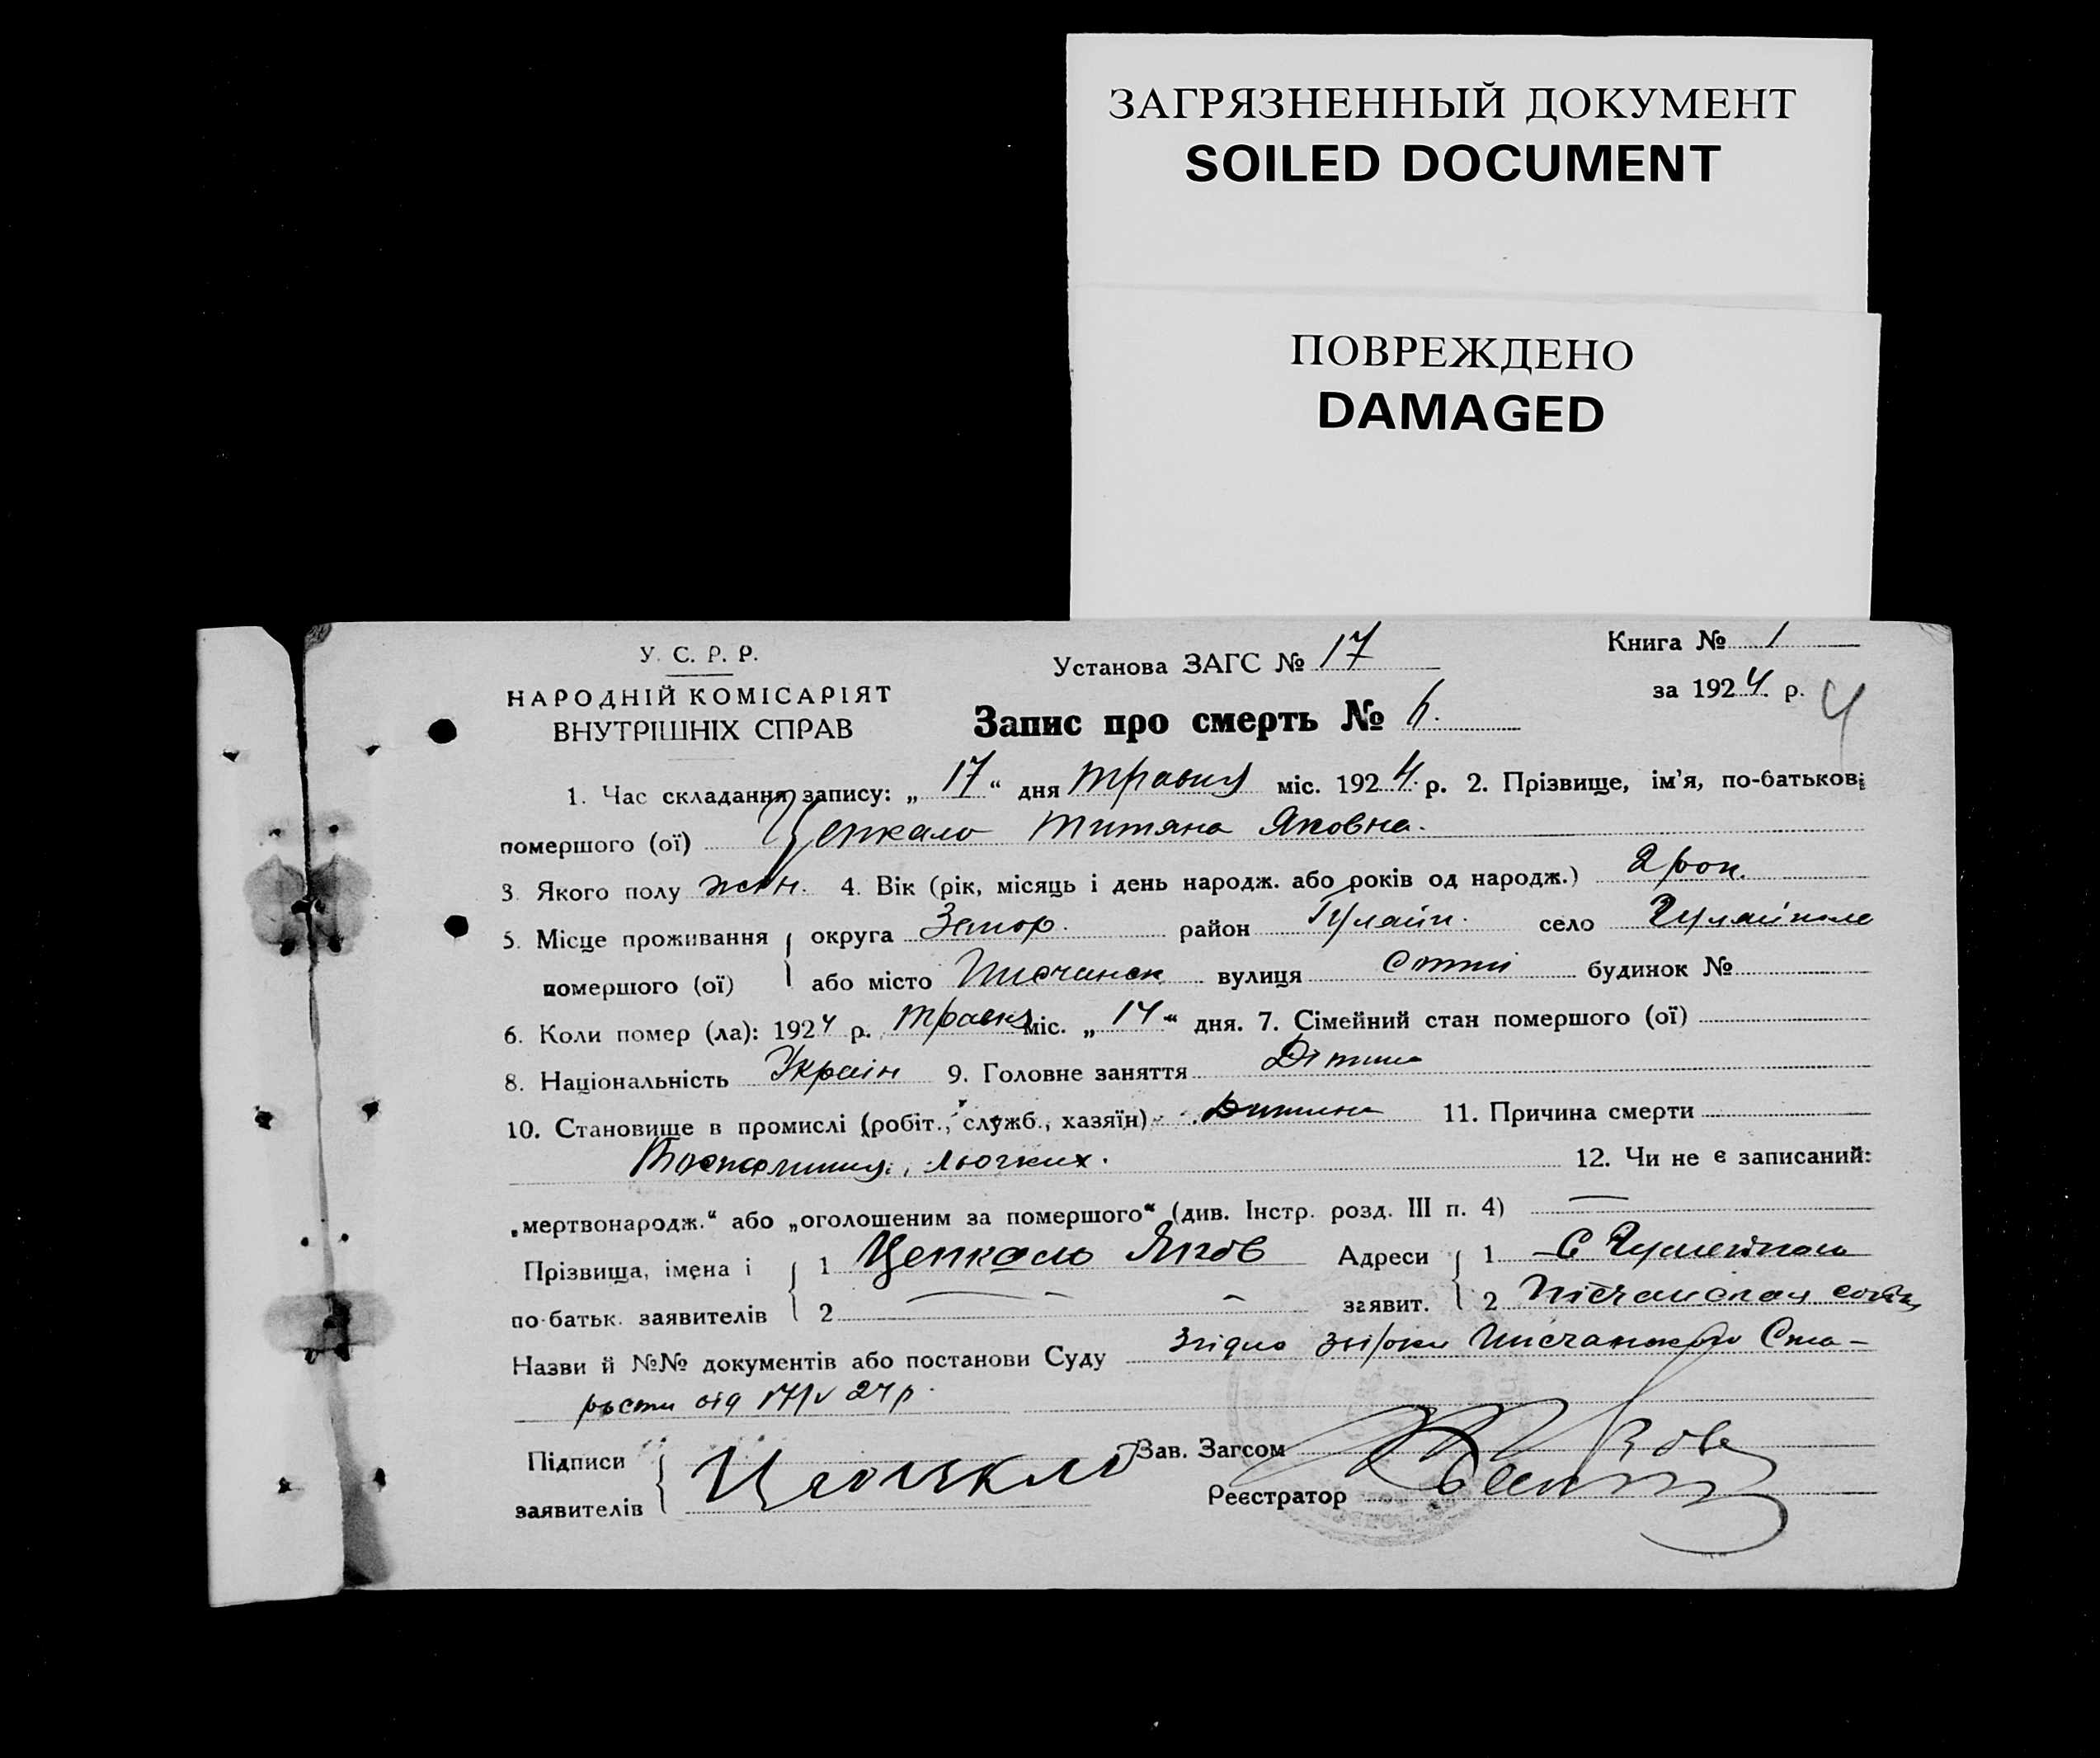 ЗАГРЯЗНЕННЫЙ ДОКУМЕНТ
SOILED DOCUMENT
ПОВРЕЖДЕНО
DAMAGED
У. С. Р. Р.
НАРОДНІЙ КОМІСАРІЯТ
ВНУТРІШНІХ СПРАВ
Установа ЗАГС № 17
Книга № 1
за 1924 р.
4
Запис про смерть № 6.
1. Час складання запису: „17“ дня травня міс. 1924 р. 2. Прізвище, ім’я, по-батькові
помершого (ої) Цепкало Титяна Яковна.
3. Якого полу жін. 4. Вік (рік, місяць і день народж. або років од народж.) 2 рок.
5. Місце проживання округа Запор. район Гуляйп. село Гуляйполе
помершого (ої) або місто Писчанск. вулиця Сотні будинок №
6. Коли помер (ла): 1924 р. травня міс. „14“ дня. 7. Сімейний стан помершого (ої)
8. Національність Україн 9. Головне заняття Дітина
10. Становище в промислі (робіт., служб., хазяїн) Дитина 11. Причина смерти
Воспалиния льогких. 12. Чи не є записаний:
„мертвонародж.“ або „оголошеним за помершого“ (див. Інстр. розд. III п. 4) —
Прізвища, імена і 1 Цепкало Яков Адреси 1 С Гуляйполе
по-батьк. заявителів 2 — заявит. 2 Пісчанская сотня
Назви й №№ документів або постанови Суду Згідно Писчанского Ста-
рости від 17/V 24 р.
Підписи Зав. Загсом
заявителів Реєстратор